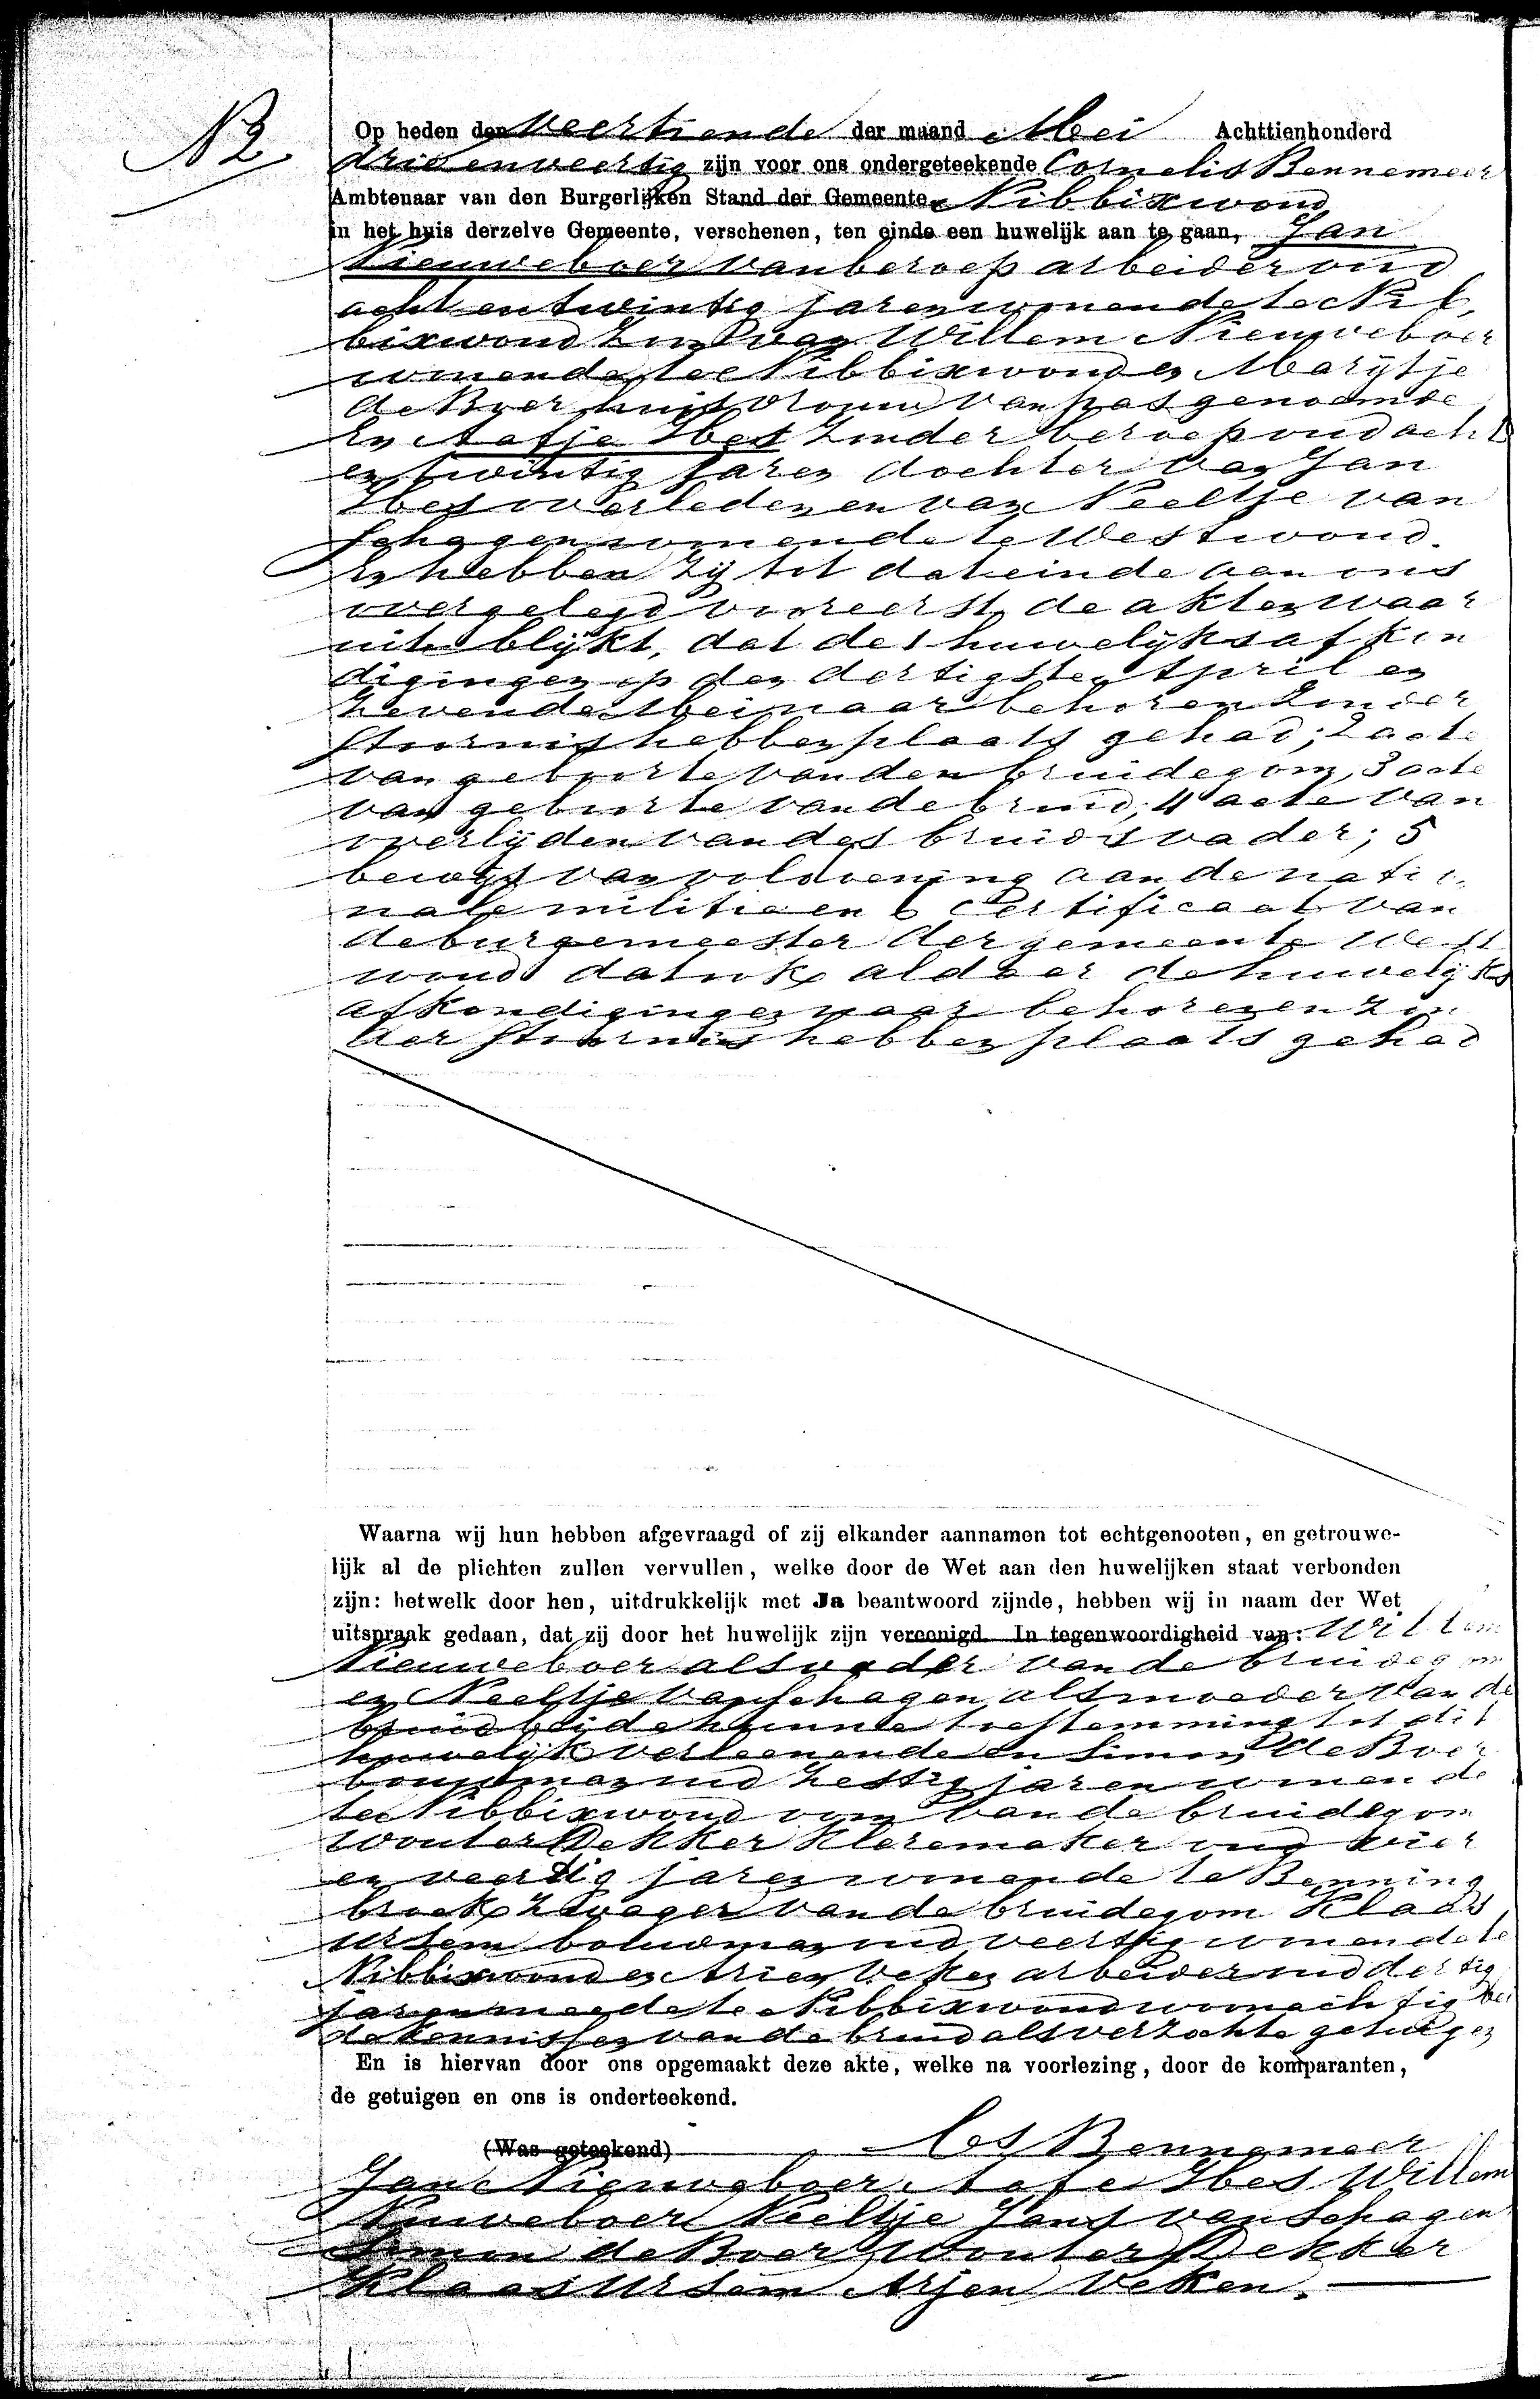 N2
Op heden den veertiende der maand Mei Achttienhonderd
drieenveertig zijn voor ons ondergeteekende Cornelis Bennemeer
Ambtenaar van den Burgerlijken Stand der Gemeente Nibbixwoud
in het huis derzelve Gemeente, verschenen, ten einde een huwelijk aan te gaan, Jan
Nieuweboer van beroep arbeider oud
acht en twintig jaren wonende te Nib
bixwoud zoon van Willem Nieuweboer
wonende te Nibbixwoud en Marijtje
de Boer huisvrouw van pas genoemde
En Aafje Hes zonder beroep oud acht
en twintig jaren dochter van Jan
Hes overleden en van Neeltje van
Schagen wonende te Westwoud.
En hebben zij tot dat einde aan ons
overgelegd vooreerst de akten waar
uit blijkt, dat de huwelijksafkon
digingen op den dertigsten April en
zevende Mei naar behoren zonder
stoornis hebben plaats gehad; 2 acte
van geboorte van den bruidegom, 3 acte
van geboorte van de bruid; 4 acte van
overlijden van des bruids vader; 5
bewijs van voldoening aan de natio
nale militie en 6 Certificaat van
de burgemeester der gemeente West
woud dat ook aldaar de huwelijks
afkondigingen naar behoren en zon
der stoornis hebben plaats gehad
Waarna wij hun hebben afgevraagd of zij elkander aannamen tot echtgenooten, en getrouwe-
lijk al de plichten zullen vervullen, welke door de Wet aan den huwelijken staat verbonden
zijn: hetwelk door hen, uitdrukkelijk met Ja beantwoord zijnde, hebben wij in naam der Wet
uitspraak gedaan, dat zij door het huwelijk zijn vereenigd. In tegenwoordigheid van: Willem
Nieuweboer als vader van de bruidegom
en Neeltje van Schagen als moeder van de
bruid beide hunne toestemming tot dit
huwelijk verleenende en Simon de Boer
bouwman oud zestig jaren wonende
te Nibbixwoud oom van de bruidegom
Wouter Dekker Kleremaker oud vier
en veertig jaren wonende te Benning
broek zwager van de bruidegom Klaas
Ursem bouwman oud veertig wonende te
Nibbixwoud en Arien Veken arbeider oud dertig
jaren mede te Nibbixwoud woonachtig bei
de kennissen van de bruid als verzochte getuigen
En is hiervan door ons opgemaakt deze akte, welke na voorlezing, door de komparanten,
de getuigen en ons is onderteekend.
(Was geteekend) Cs Bennemeer
Jan Nieuweboer Aafe Hes Willem
Nuweboer Neeltje Jans van Schagen
Simon de Boer Wouter Dekker
Klaas Ursem Arjen Veken.